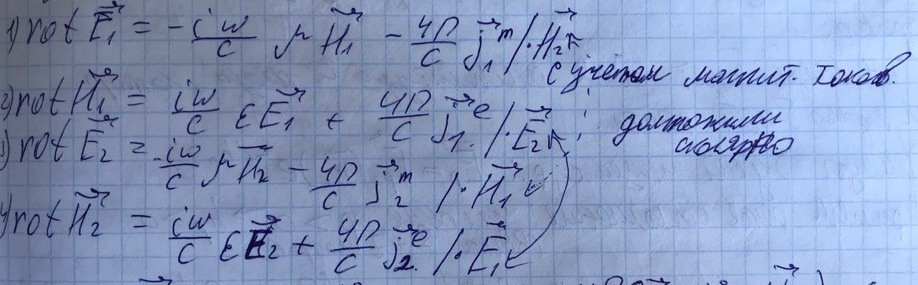 1) rot E⃗₁ = -iω/c μ H⃗₁ - 4π/c j⃗₁ᵐ /· H⃗₂
с учётом магнит. токов.
2) rot H⃗₁ = iω/c ε E⃗₁ + 4π/c j⃗₁ᵉ /· E⃗₂
3) rot E⃗₂ = -iω/c μ H⃗₂ - 4π/c j⃗₂ᵐ /· H⃗₁
4) rot H⃗₂ = iω/c ε E⃗₂ + 4π/c j⃗₂ᵉ /· E⃗₁